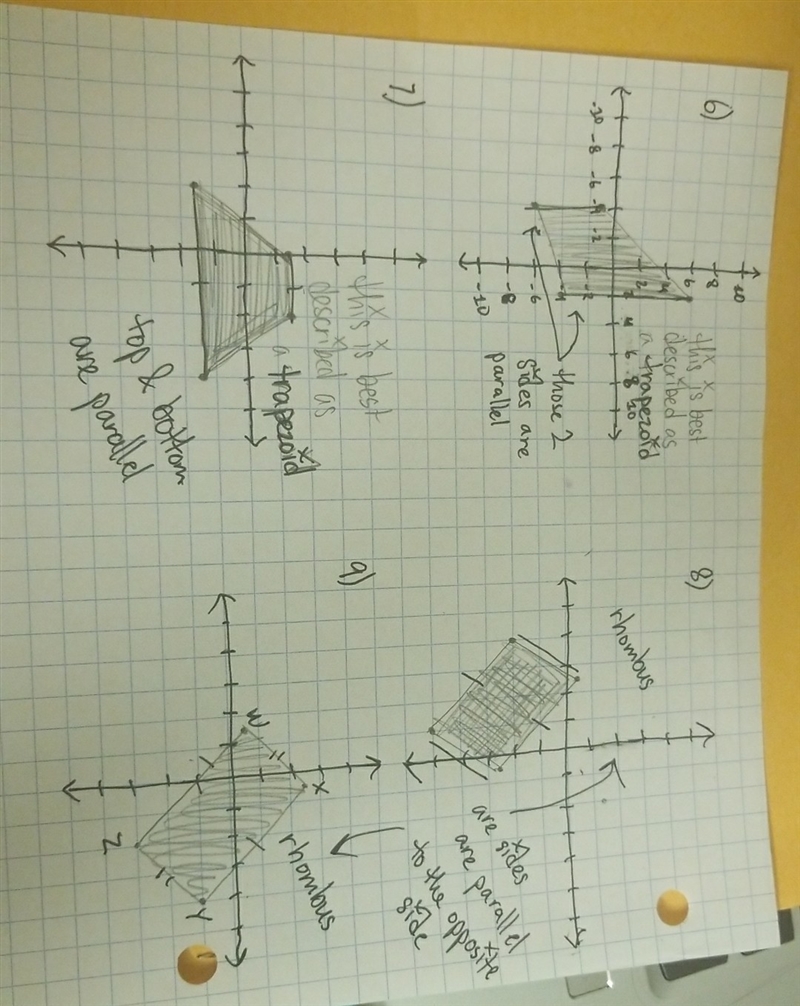 6)
10
8
6
4
2
-10 -8 -6 -4 -2 2 4 6 8 10
-2
-4
-6
-8
-10
this is best
described as
a trapezoid
those 2
sides are
parallel
8)
rhombus
are sides
are parallel
to the opposite
side
7)
this is best
described as
a trapezoid
top & bottom
are parallel
9)
W
X
Y
Z
rhombus